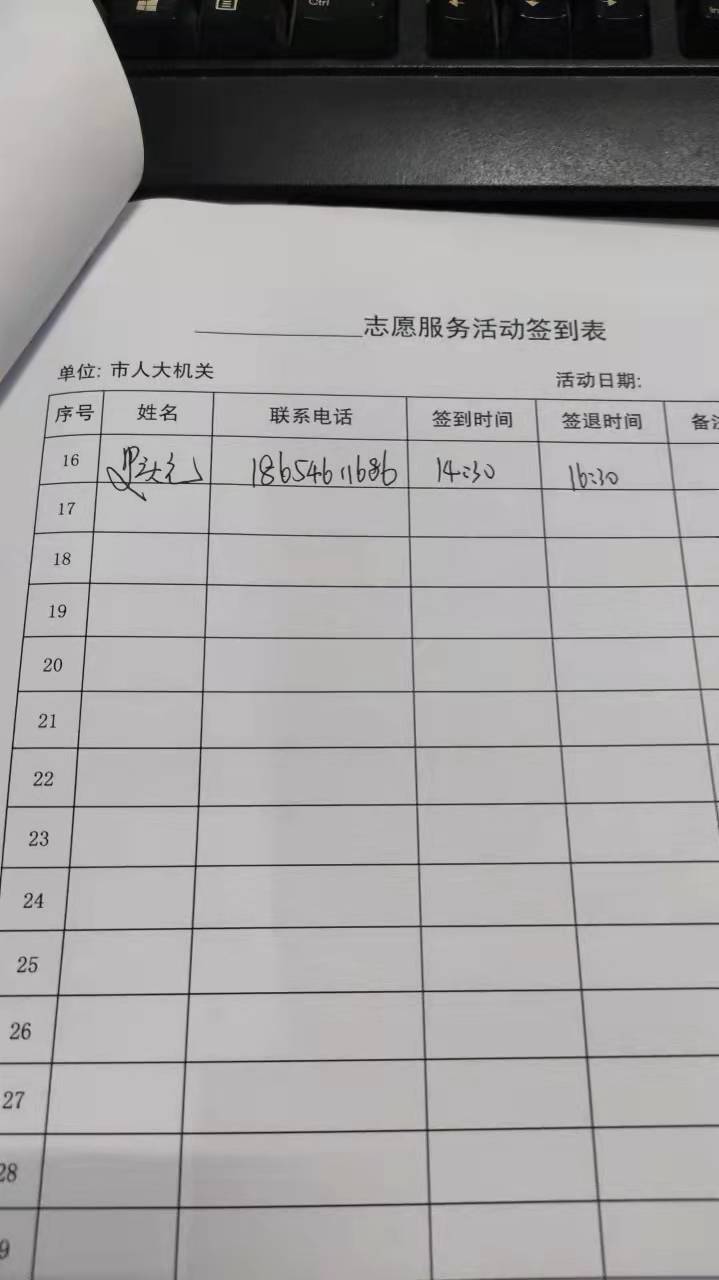 Ctrl
志愿服务活动签到表
单位: 市人大机关
活动日期:
序号 姓名 联系电话 签到时间 签退时间
16 18654611686 14:30 16:30
17
18
19
20
21
22
23
24
25
26
27
28